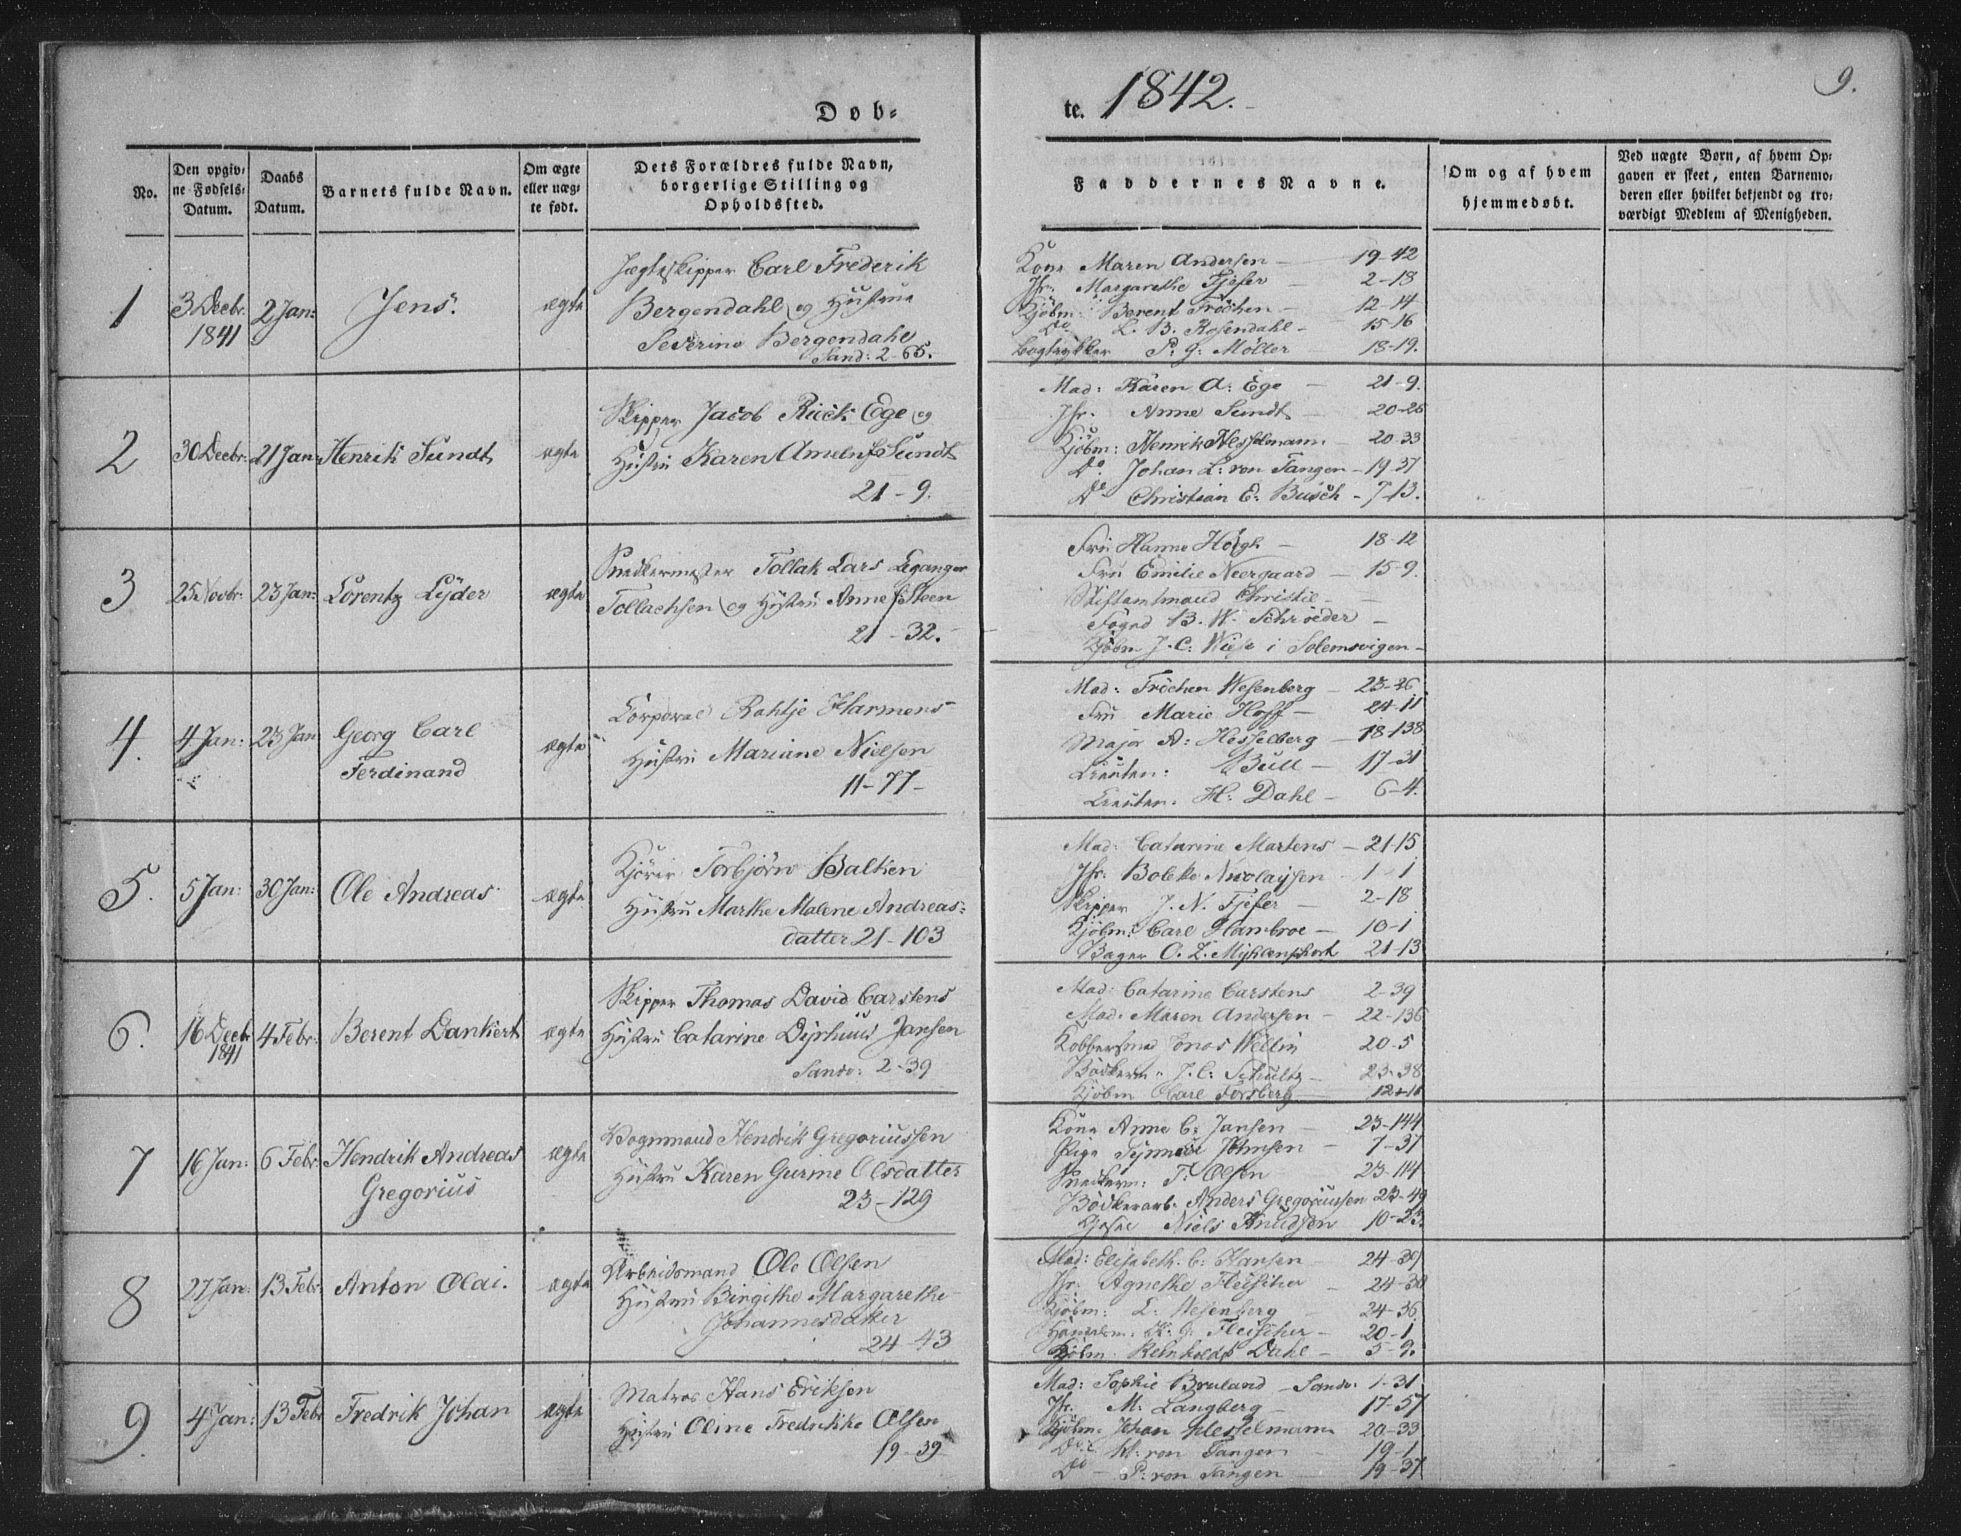 Døb-
te. 1842.
9.
No.
Den opgiv-
ne Fødsels-
Datum.
Daabs
Datum.
Barnets fulde Navn.
Om ægte
eller uæg-
te født.
Dets Forældres fulde Navn,
borgerlige Stilling og
Opholdssted.
Faddernes Navne.
Om og af hvem
hjemmedøbt.
Ved uægte Børn, af hvem Op-
gaven er skeet, enten Barnemo-
deren eller hvilket bekjendt og tro-
værdigt Medlem af Menigheden.
1
3 Decbr.
1841
2 Jan:
Jens.
ægte
Jægteskipper Carl Frederik
Bergendahl og Hustrue
Severine Bergendahl
Sand: 2-65.
Kone Maren Andersen - 19-42
Jfr: Margarethe Fjeser - 2-18
Kjøbm: Berent Fröchen - 12-14
Do L. B. Rosendahl - 15-16
Bogtrykker P. G. Möller 18-19.
2
30 Decbr:
21 Jan:
Henrik Sundt
ægte
Skipper Jacob Rieck Ege og
Hustru Karen Ameln f Sundt
21-9.
Mad: Karen A: Ege - 21-9.
Jfr. Anne Sundt - 20-26
Kjöbm: Henrik Hesselmann - 20-33
Do. Johan L: von Tangen - 19-37
Do Christian E: Busch - 7-13.
3
25 Novbr.
23 Jan:
Lorentz Lyder
ægte
Snedkermester Tollak Lars Leganger
Tollachsen og Hustru Anne f Steen
21-32.
Fru Hanne Höegh - 18-12
Fru Emilie Neergaard - 15-9.
Stiftamtmand Christie -
Foged B. W. Schröeder -
Kjöbm J. C. Wiese i Solemsvigen -
4.
4 Jan:
23 Jan
Georg Carl
Ferdinand
ægte
Corporal Rohtje Harmens
Hustru Mariane Nielsen
11-77-
Mad: Fröchen Wesenberg - 23-26
Fru Marie Hoff - 24-11
Major A: Hesselberg - 18-138
Lieuten: Bull - 17-31
Lieuten. H: Dahl - 6-4.
5.
5 Jan:
30 Jan:
Ole Andreas
ægte
Kjörer Torbjörn Balken
Hustru Marthe Malene Andreas-
datter 21-103
Mad: Catarine Martens - 21-15
Jfr: Bolette Nicolaysen - 1-1
Skipper J. N. Fjeser - 2-18
Kjöbm: Carl Hambroe - 10-1
Bager O. Z. 21-13
6.
16 Decbr
1841
4 Febr:
Berent Dankert
ægte
Skipper Thomas David Carstens
Hustru Catarine Dyrhuus Jansen
Sandv: 2-39
Mad: Catarine Carstens 2-39
Mad. Maren Andersen - 22-136
Kobbersmed Jonas Wellin 20-5
Bödkerm. J. C: Schultz - 23-38
Kjöbm Carl Forsberg
7
16 Jan:
6 Febr.
Hendrik Andreas
Gregorius
ægte
Vognmand Hendrik Gregoriussen
Hustru Karen Gurine Olsdatter
23-129
Kone Anne C: Jansen - 23-144
Pige Synneve Johnsen - 7-37
Snedkerm: T: Olsen 23-114
Bödkerarb. Anders Gregoriussen 23-49
Niels Knudsen 10-23.
8
27 Jan:
13 Febr.
Anton Olai.
ægte
Arbeidsmand Ole Olsen
Hustru Birgithe Margarethe
Johannesdatter
24-43
Mad: Elisabeth C: Hansen 24-39
Jfr: Agnethe Fleischer - 24-30
Kjöbm: L: Wesenberg 24-36
Handelsm: H: G: Fleischer - 20-1
Kjöbm. Reinholdt Dahl - 5-9.
9.
4 Jan:
13 Febr
Fredrik Johan
ægte
Matros Hans Eriksen
Hustru Oline Fredrikke Olsen
19-39
Mad: Sophie Bruland - Sandv: 1-31.
Jfr. M: Langberg - 17-57
Kjöbm. Johan Hesselmann 20-33
Do: W: von Tangen - 19-1
Do - P: von Tangen - 19-37